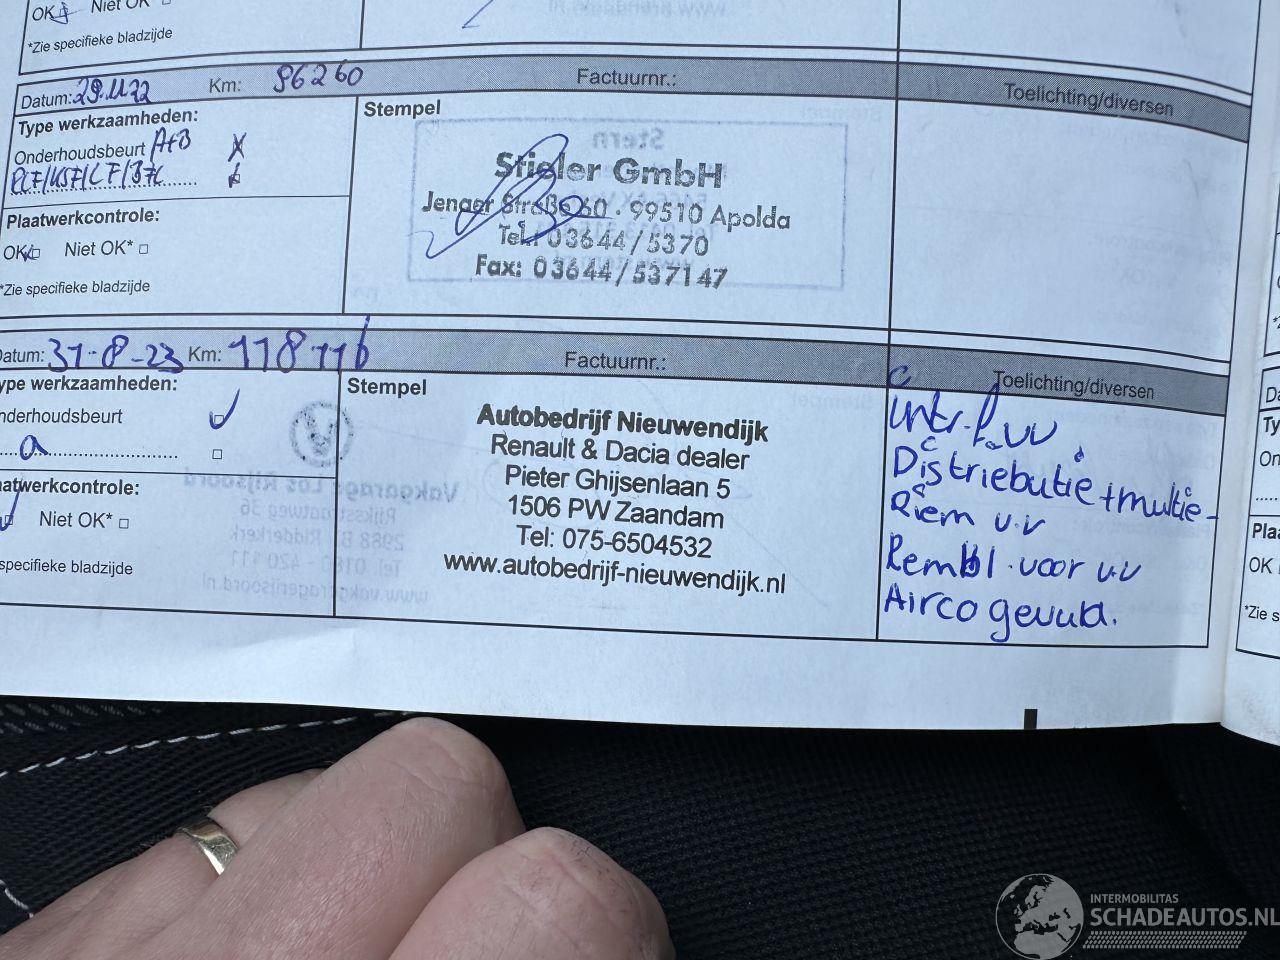 OK Niet OK
*Zie specifieke bladzijde
Datum: 29.11.22 Km: 96260 Factuurnr.: Toelichting/diversen
Type werkzaamheden:
Onderhoudsbeurt A+B
Plaatwerkcontrole:
OK Niet OK*
*Zie specifieke bladzijde
Stempel
Stieler GmbH
Jenaer Straße 60 · 99510 Apolda
Tel.: 03644/5370
Fax: 03644/537147
Datum: 31-8-23 Km: 118116 Factuurnr.: Toelichting/diversen
ype werkzaamheden:
nderhoudsbeurt
a
aatwerkcontrole:
Niet OK*
specifieke bladzijde
Stempel
Autobedrijf Nieuwendijk
Renault & Dacia dealer
Pieter Ghijsenlaan 5
1506 PW Zaandam
Tel: 075-6504532
www.autobedrijf-nieuwendijk.nl
Distriebutie + multie-
Riem v.v
Rembl. voor v.v
Airco gevuld.
Vakgarage Los Rijsoord
Rijksstraatweg 36
2988 BJ Ridderkerk
Tel. 0180 - 420 111
www.vakgaragerijsoord.nl
Da
Ty
On
Plaa
OK
*Zie s
INTERMOBILITAS
SCHADEAUTOS.NL